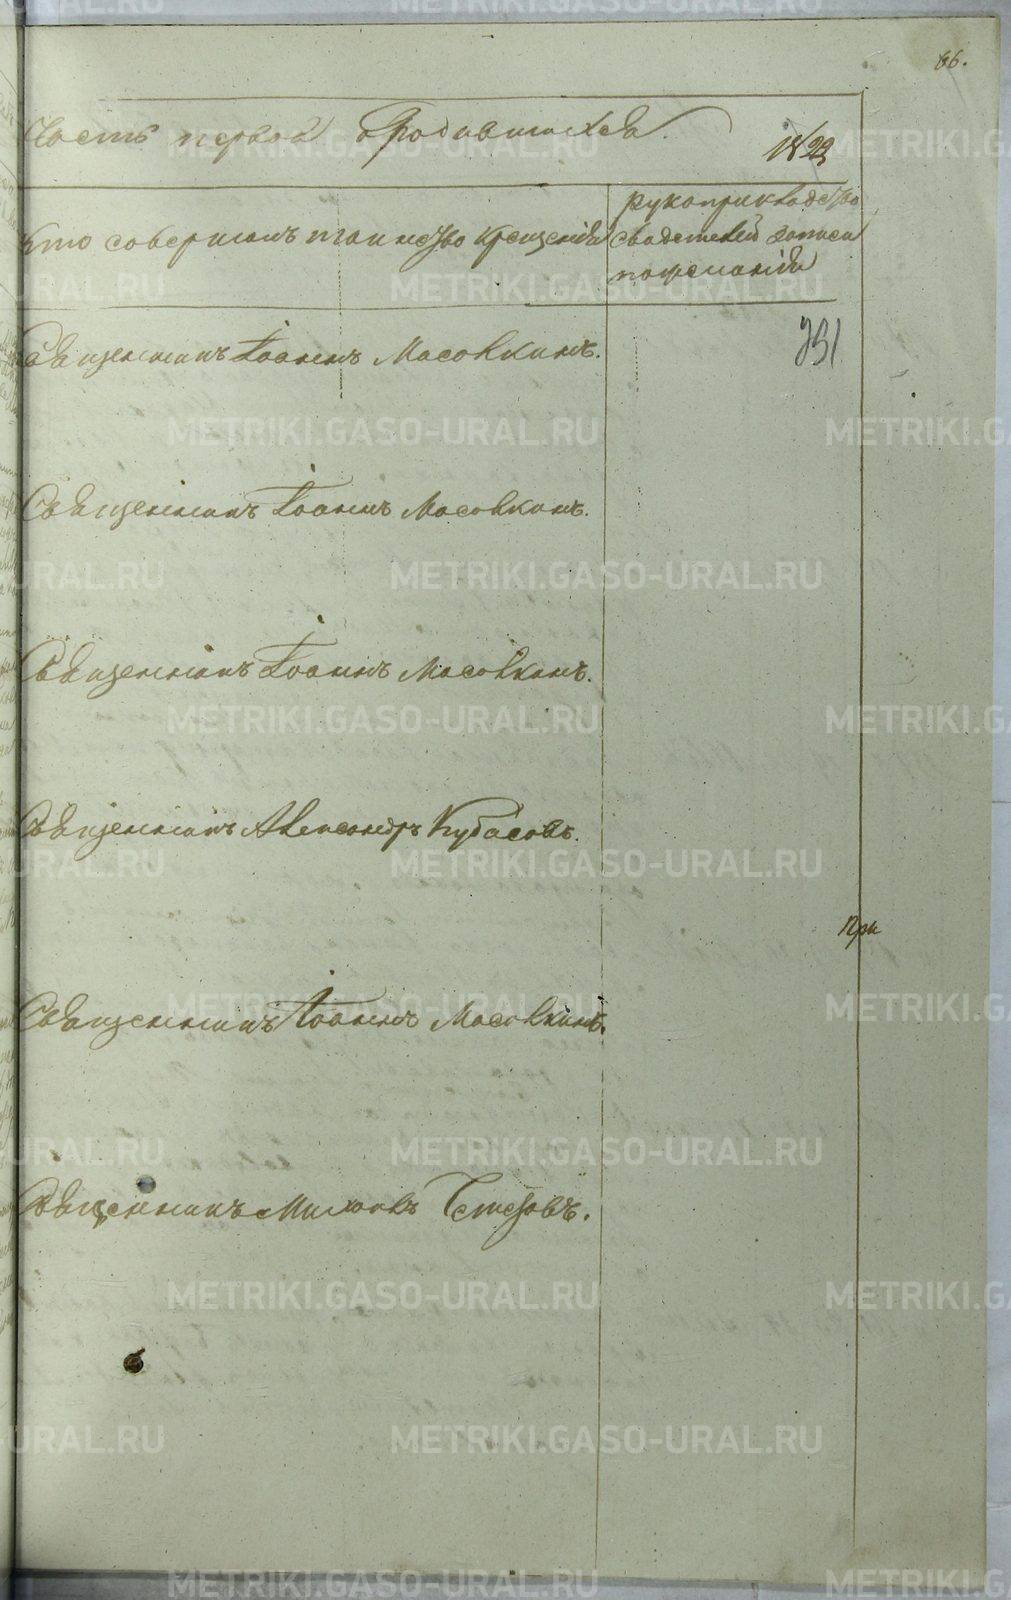 66.
Часть первая о родившихся.
Кто совершалъ таинство крещенія
рукоприкладство
свидетелей записи
по желанію
391
Священникъ Іоаннъ Масовкинъ.
Священникъ Іоаннъ Масовкинъ.
Священникъ Іоаннъ Масовкинъ.
Священникъ Александръ Кубасовъ.
При
Священникъ Іоаннъ Масовкинъ.
Священникъ Михаилъ
METRIKI.GASO-URAL.RU